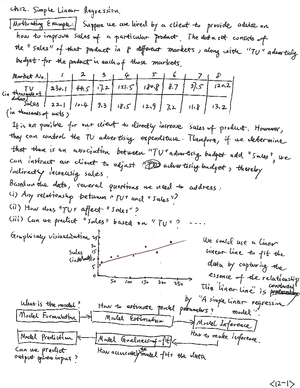 ch12. Simple Linear Regression
Motivating Example: Suppose we are hired by a client to provide advice on
how to improve sales of a particular product. The data set consists of
the "Sales" of that product in 8 different markets, along with "TV" advertising
budget for the product in each of those markets.
Market No. 1 2 3 4 5 6 7 8
TV 230.1 44.5 17.2 151.5 180.8 8.7 57.5 120.2
(in thousands of dollars)
Sales 22.1 10.4 9.3 18.5 12.9 7.2 11.8 13.2
(in thousands of units)
It is not possible for our client to directly increase sales of product. However,
they can control the TV advertising expenditure. Therefore, if we determine
that there is an association between "TV" advertising budget and "Sales", we
can instruct our client to adjust advertising budget, thereby
indirectly increasing sales.
Based on the data, several questions we need to address:
(i) Any relationship between "TV" and "Sales"?
(ii) How does "TV" affect "Sales"?
(iii) Can we predict "Sales" based on "TV"? ....
Graphically visualization,
Sales
50 100 150 200 250
We could use a linear
line to fit the
data by capturing the
essence of the relationship
This "linear line" is
by "A simple linear regression
model".
What is the model?
How to estimate model parameters?
Model Formulation
Model Estimation
Model Inference
How to make inference.
Model Prediction
Model Goodness-of-fit
Can we predict
output given input?
How accurately the model fits the data
<12-1>